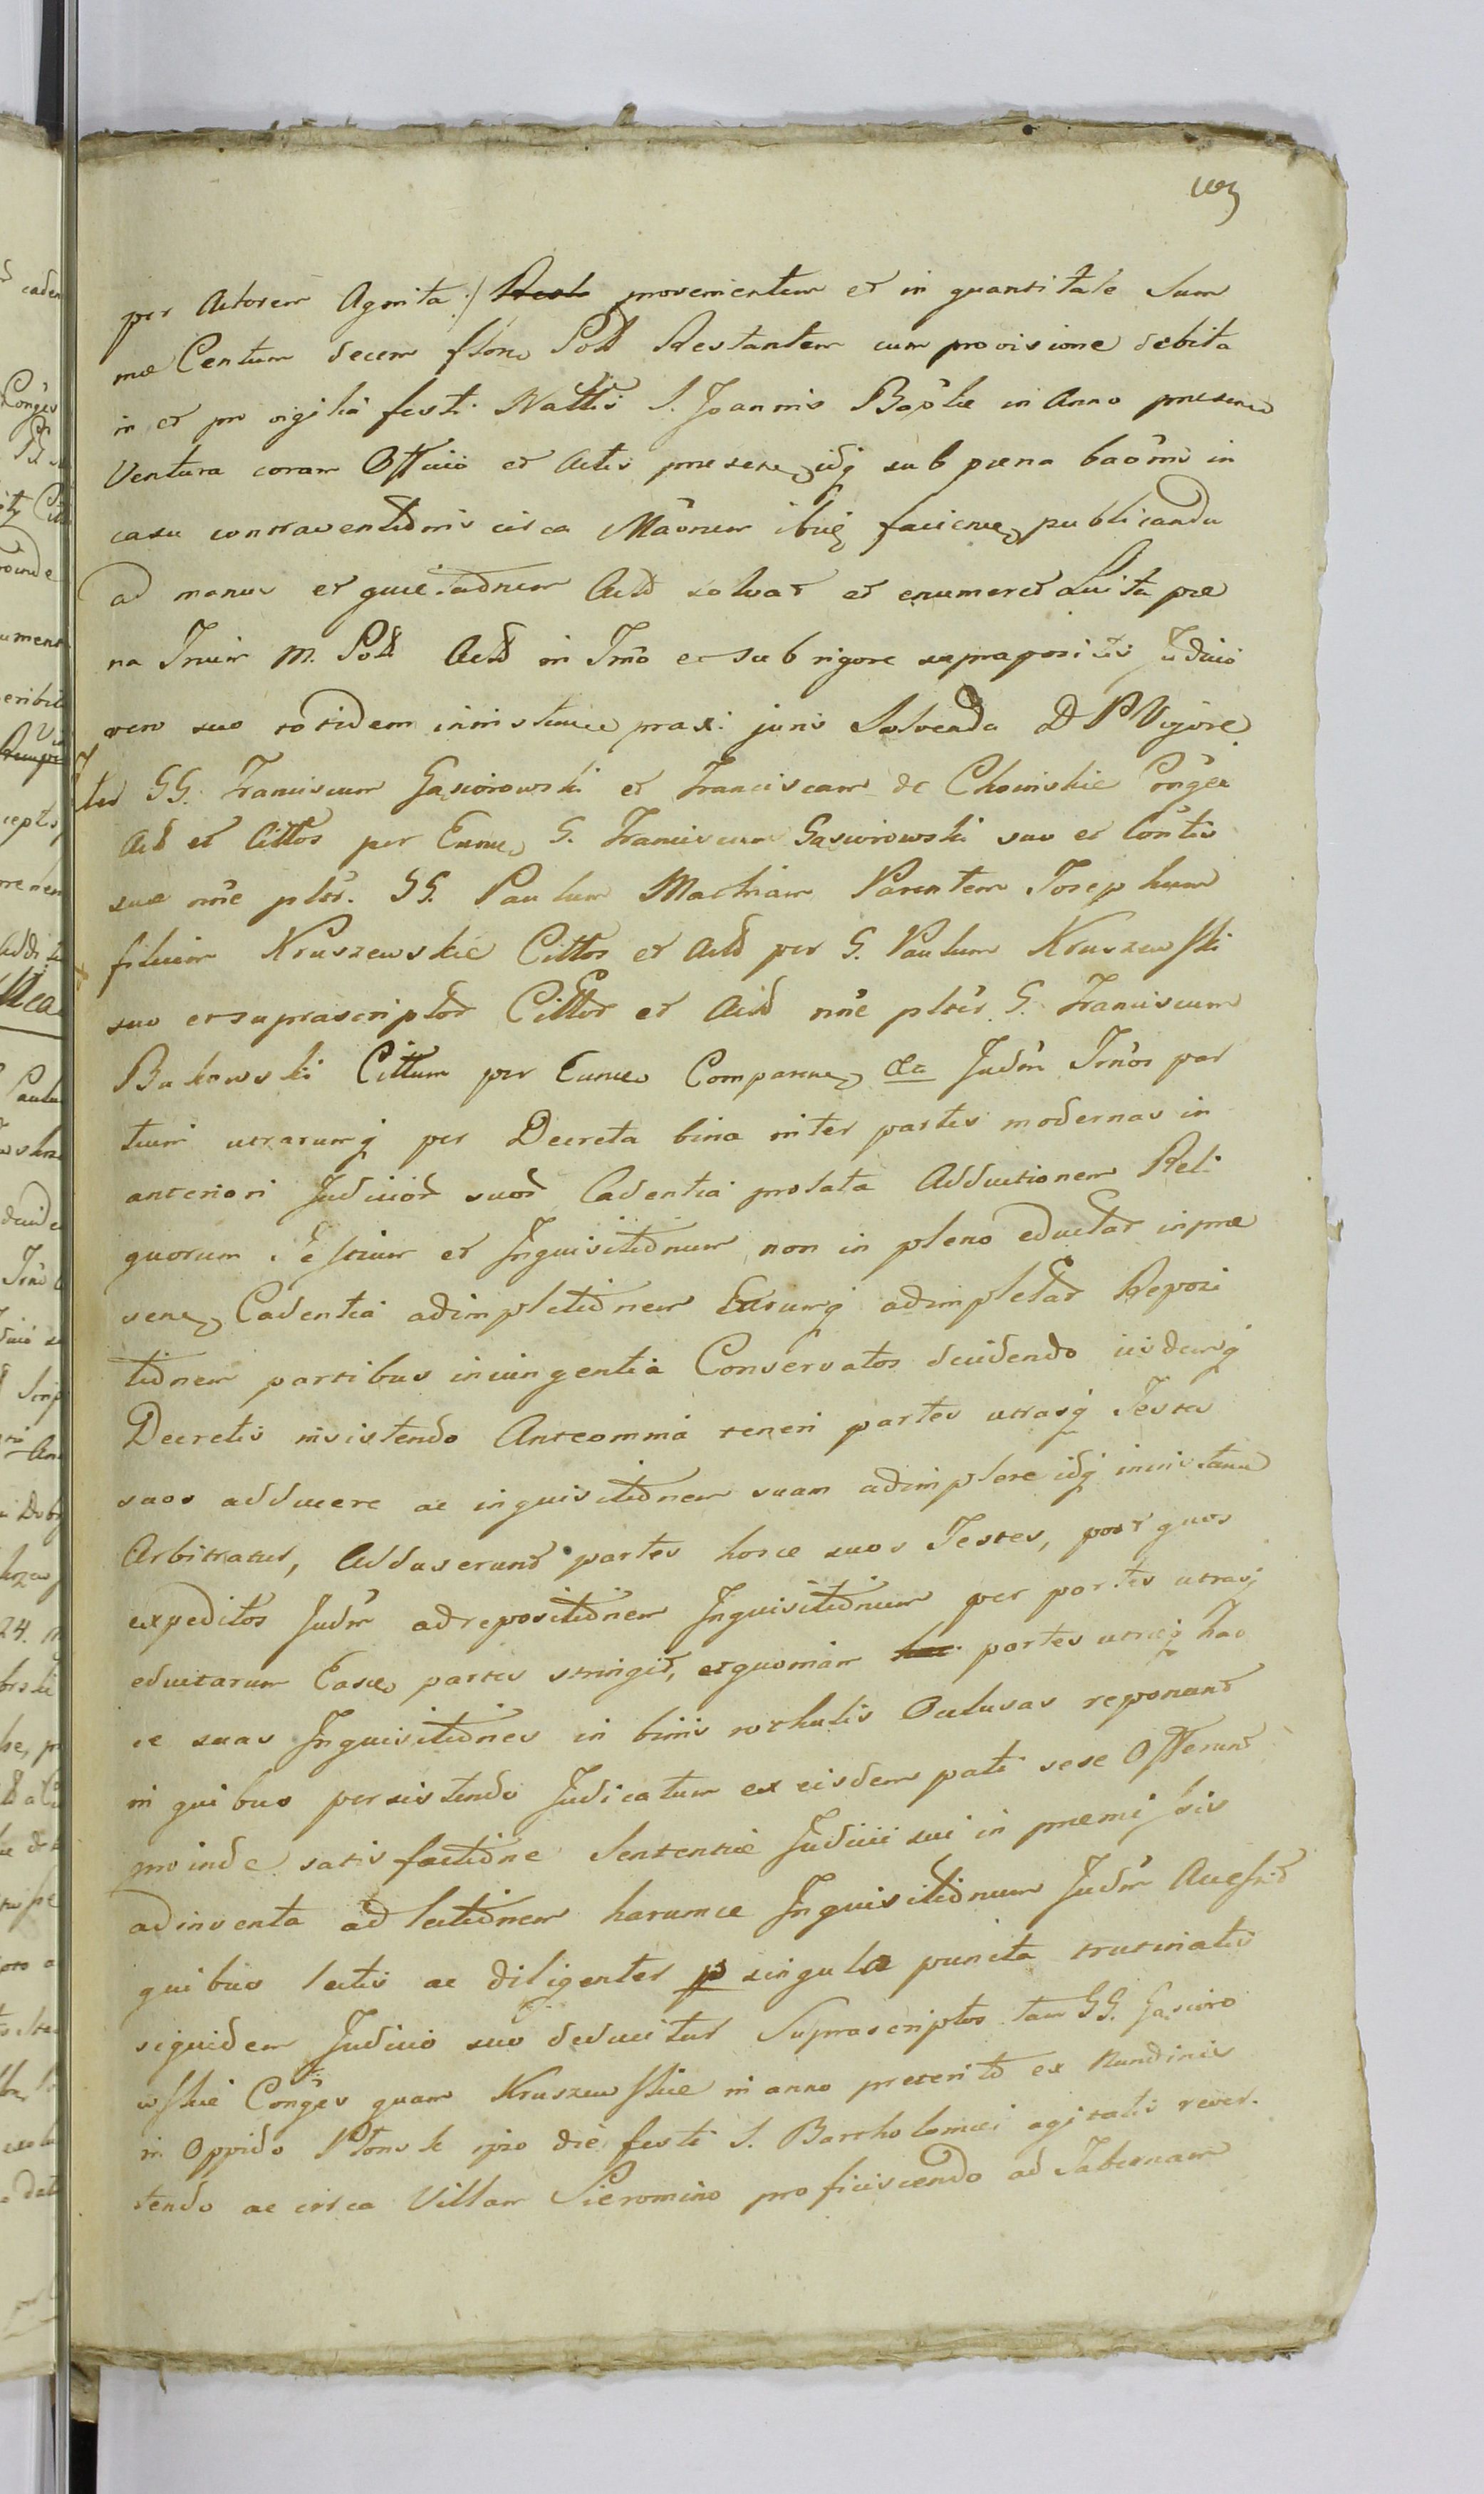 per Actorem Agnita :/ provenientem et in quantitate Sum
mæ Centum decem floreno Poll Restantem cum provisione debita
in et pro vigilia festi Nattis S. Joannis Baptæ in Anno præsen
Ventura coram Officio et Actis præsen, idq sub pœna baõnis in
casu contraventiõnis circa Maõnem ibiq facien, publicanda
ad manus et quietaõnem Actt solvat et enumeret Luita pœ
na Trium M. Poll Actt in Tmõ et sub rigore suprapositis Judicio
vero suo totidem ininstanter praxi juris Solvenda D P Vigore
Inter GG. Franciscum Gąsiorowski et Franciscam de Choinskie Conges
Act et Cittos per Eunde G. Franciscum Gąsiorowski suo et Contis
suæ nõe pltes. GG. Paulum Machiam Parentem Josephum
filium Kruszewskie Cittos et Actt per G. Paulum Kruszewski
suo et suprascriptor Cittor et Actt nõe pltes G. Franciscum
Bukowski Cittum per Eunde Comparen, &a Judm Tmos par
tium utrarumq per Decreta bina inter partes modernas in
anteriori Judicior suor Cadentia prolata Adductionem Reli
quorum Testium et Inquisitiõnum non in pleno eductar in præ
sen, Cadentia adimpletiõnem Earumq adimpletar Reposi
tiõnem partibus iniungentia Conservatos decidendo iisdemq
Decretis insistendo Anteomnia teneri partes utrasq Testes
suos adducere ac inquisitiõnem suam adimplere idq ininstanti
Arbitratur, Adduxerunt partes hosce suos Testes, post quos
expeditos Judm ad repositiõnem Inquisitiõnum per partes utrasq
eductarum Easde partes stringit, et quoniam partes utræq has
ce suas Inquisitiõnes in binis rothulis Oclusas reponunt
in quibus persistendo Judicatum ex eisdem pati sese Offerunt
proinde satisfactiõne Sententiæ Judicii sui in præmissis
adinventa ad lectiõnem harumce Inquisitiõnum Judm Accessit
quibus lectis ac diligenter p singula puncta trutinatis
siquidem Judicio suo deducitur Suprascriptos tam GG. Gąsioro
wskie Conges quam Kruszewskie in anno preterito ex Nundinis
in Oppido Płonsk ipso die festi S. Bartholomæi agitatis rever
tendo ac circa Villam Sieromino proficiscendo ad Tabernam